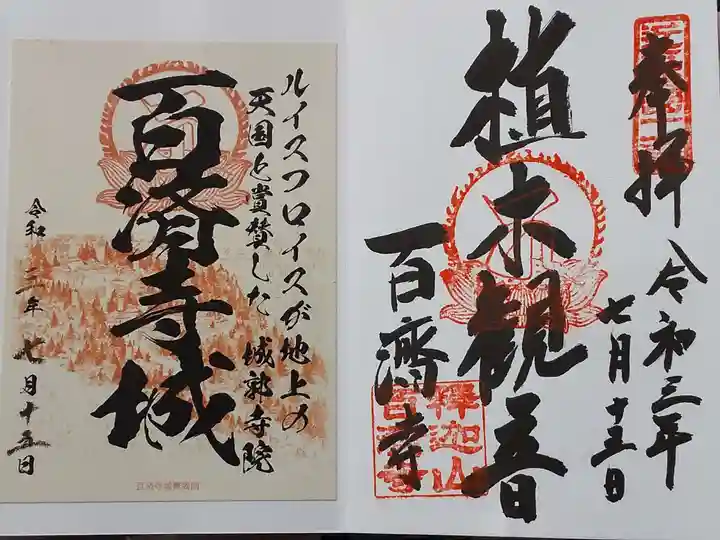 奉拝
令和三年
七月十五日
植木観音
百濟寺
釋迦山
ルイスフロイスが地上の
天国と賞賛した 城郭寺院
百済寺城
令和三年七月十五日